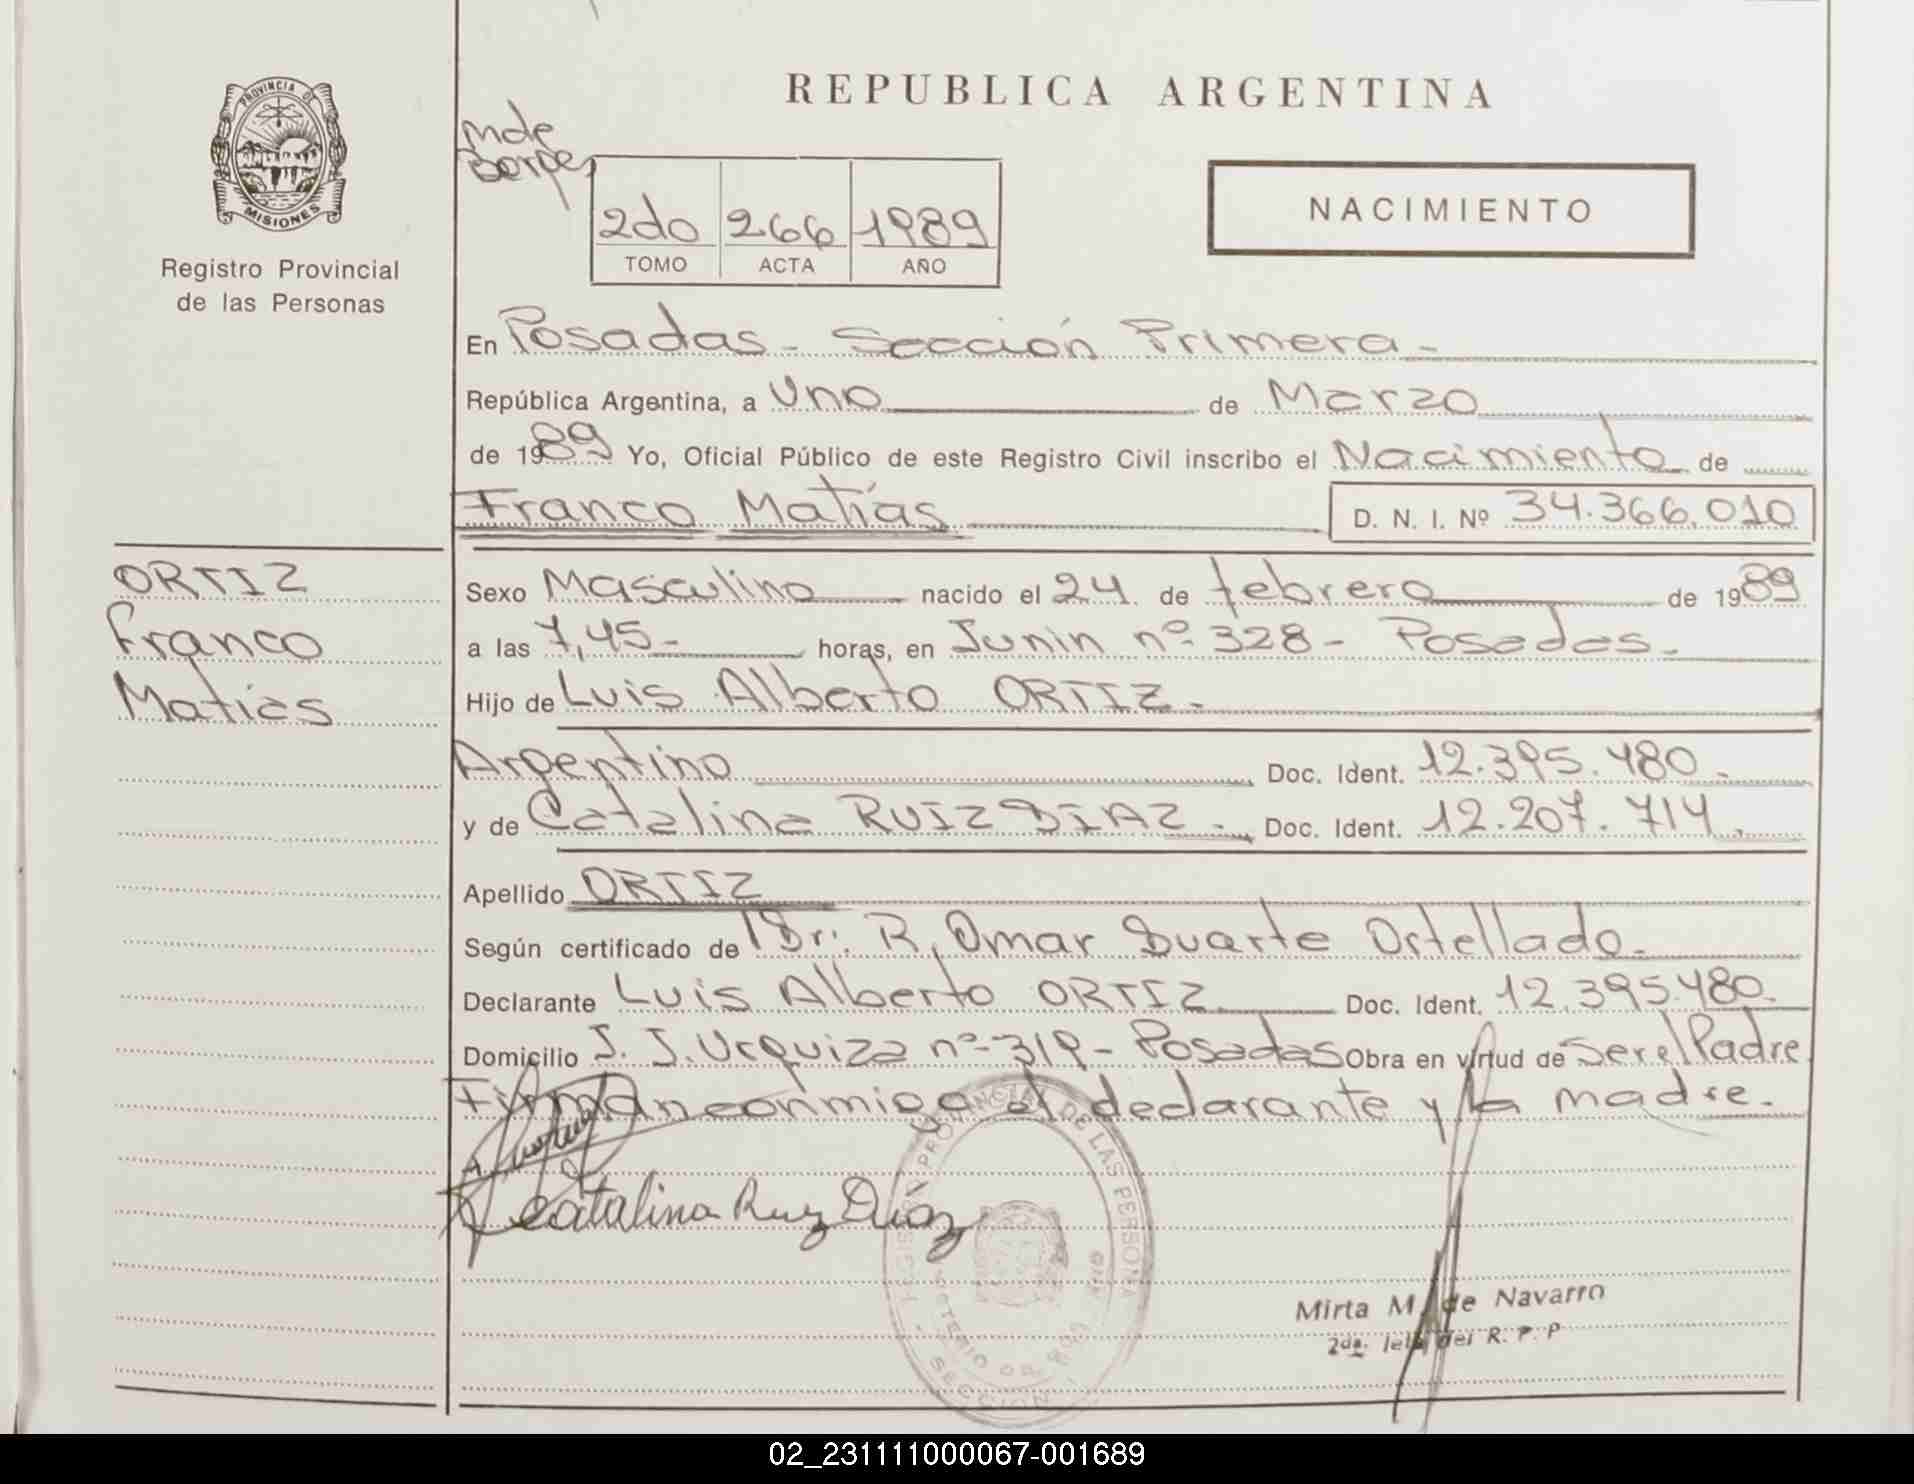 PROVINCIA DE
MISIONES
Registro Provincial
de las Personas
REPUBLICA ARGENTINA
Mde
2do 266 1989
TOMO ACTA AÑO
NACIMIENTO
En Posadas - Sección Primera -
República Argentina, a Uno de Marzo
de 1989 Yo, Oficial Público de este Registro Civil inscribo el Nacimiento de
Franco Matías D. N. I. Nº 34.366.010
ORTIZ
Franco
Matías
Sexo Masculino nacido el 24 de febrero de 1989
a las 7,45 - horas, en Junin nº 328 - Posadas.
Hijo de Luis Alberto ORTIZ -
Argentino Doc. Ident. 12.395.480 -
y de Catalina RUIZ DIAZ - Doc. Ident. 12.207.714.
Apellido ORTIZ
Según certificado de Dr. R. Omar Duarte Ortellado -
Declarante Luis Alberto ORTIZ Doc. Ident. 12.395.480.
Domicilio J. J. Urquiza nº 319 - Posadas Obra en virtud de Ser el Padre.
Firman conmigo el declarante y la madre.
Catalina Ruiz Diaz
REGISTRO PROVINCIAL DE LAS PERSONAS
MINISTERIO DE
SECCION
Mirta M. de Navarro
2da. del R. P. P
02_231111000067-001689